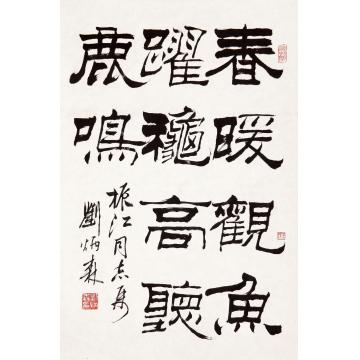 春暖觀魚
躍龝高聽
鹿鳴
振江同志屬
劉炳森